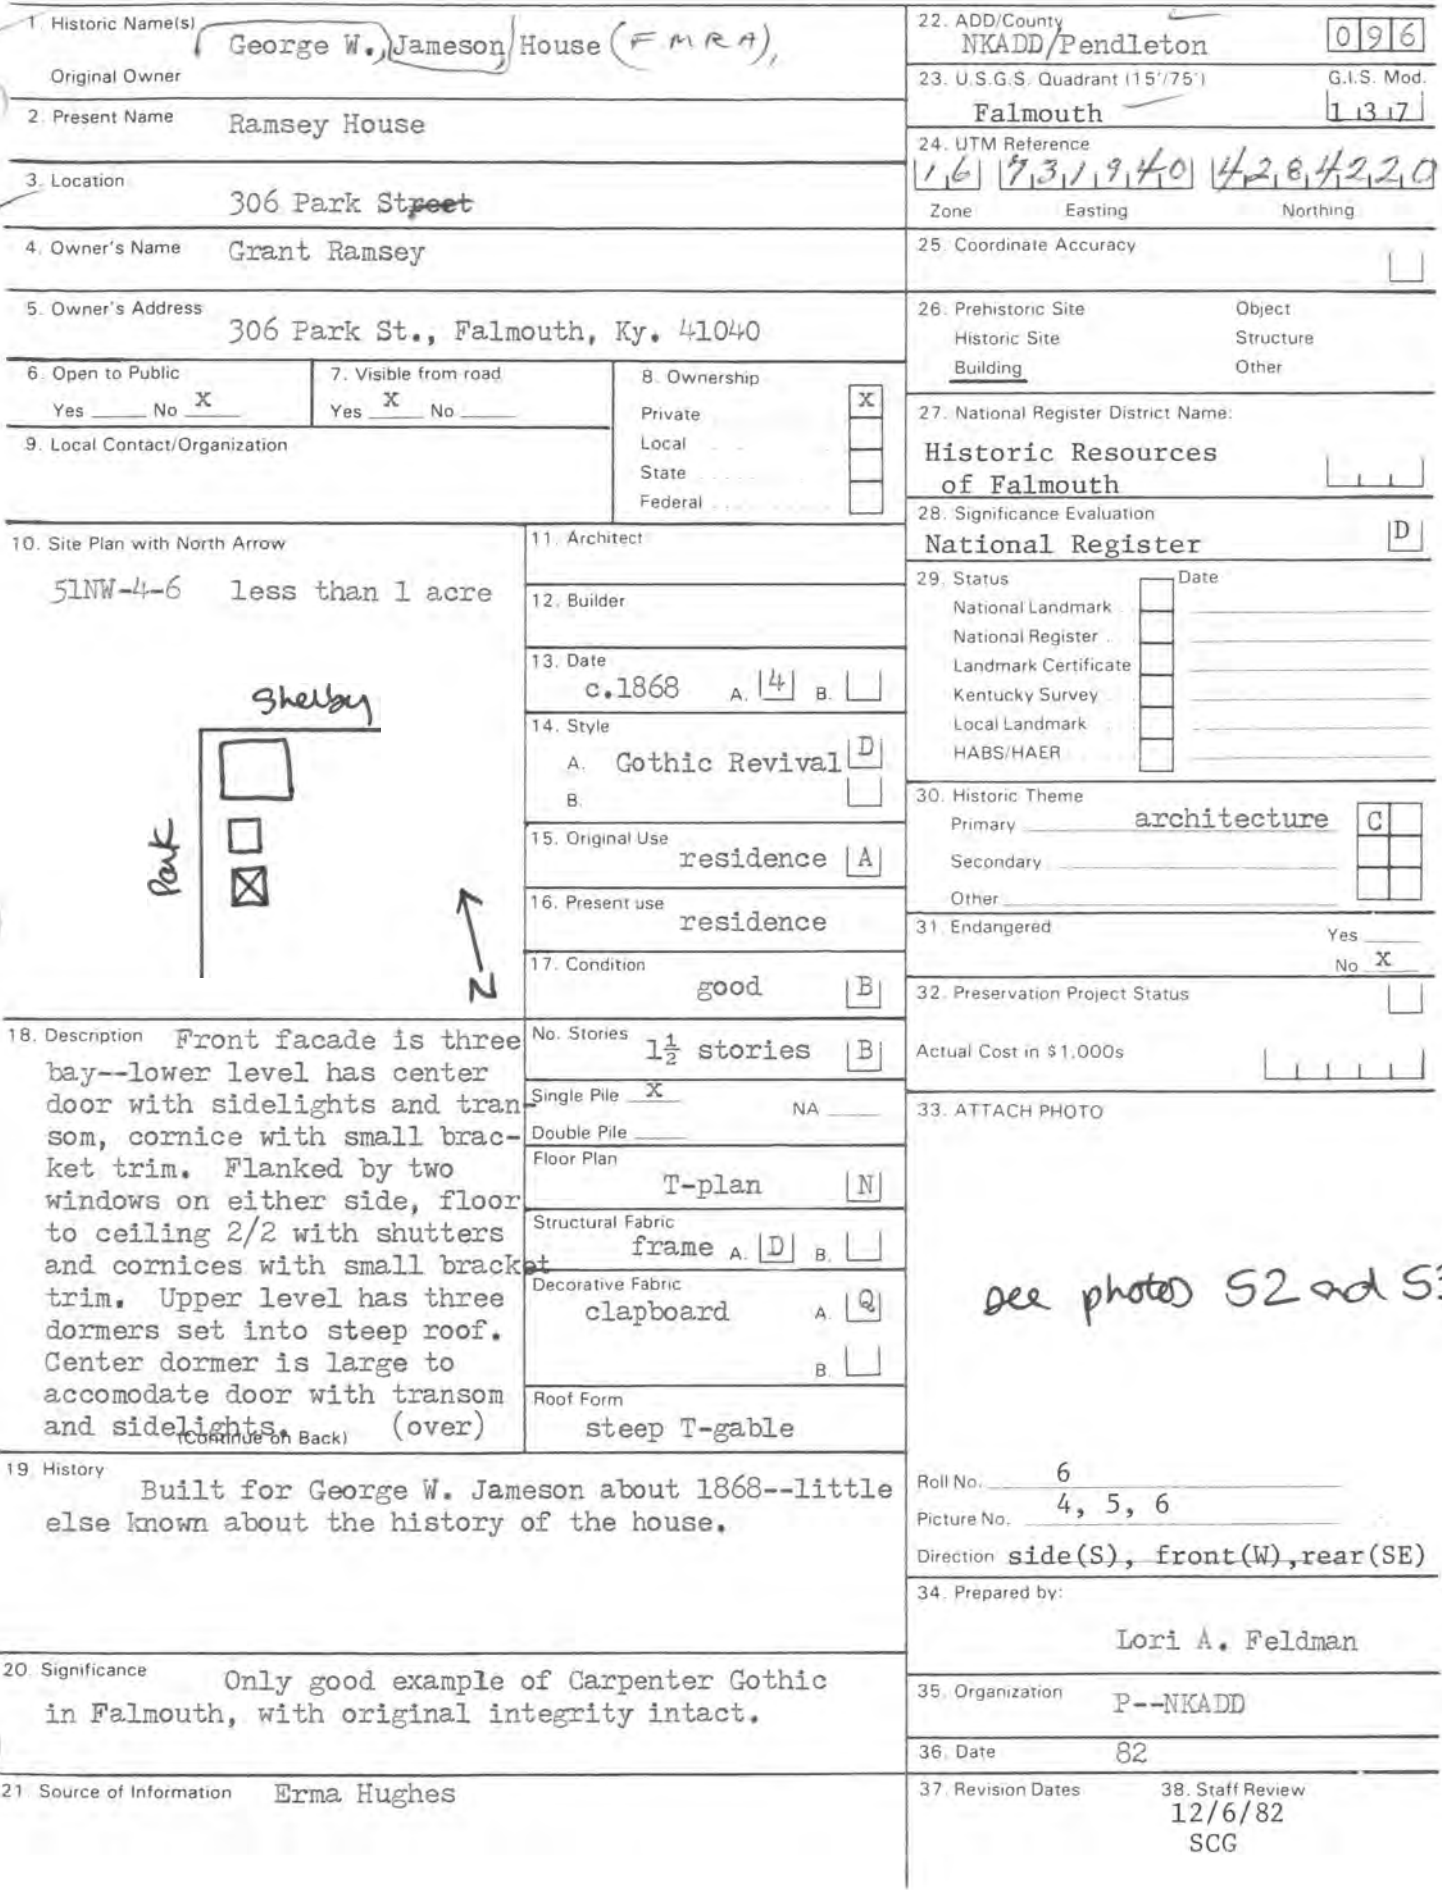 1. Historic Name(s)
George W., Jameson, House (FMRA),
Original Owner
2. Present Name
Ramsey House
3. Location
306 Park Street
4. Owner's Name
Grant Ramsey
5. Owner's Address
306 Park St., Falmouth, Ky. 41040
6. Open to Public
Yes ____ No X
7. Visible from road
Yes X No ____
8. Ownership
Private X
Local
State
Federal
9. Local Contact/Organization
10. Site Plan with North Arrow
51NW-4-6 less than 1 acre
Shelby
Park
N
11. Architect
12. Builder
13. Date
c.1868 A. 4 B.
14. Style
A. Gothic Revival D
B.
15. Original Use
residence A
16. Present use
residence
17. Condition
good B
18. Description Front facade is three
bay--lower level has center
door with sidelights and tran-
som, cornice with small brac-
ket trim. Flanked by two
windows on either side, floor
to ceiling 2/2 with shutters
and cornices with small bracket
trim. Upper level has three
dormers set into steep roof.
Center dormer is large to
accomodate door with transom
and sidelights. (over)
(Continue on Back)
No. Stories
1½ stories B
Single Pile X NA ____
Double Pile ____
Floor Plan
T-plan N
Structural Fabric
frame A. D B.
Decorative Fabric
clapboard A. Q
B.
Roof Form
steep T-gable
19. History
Built for George W. Jameson about 1868--little
else known about the history of the house.
20. Significance Only good example of Carpenter Gothic
in Falmouth, with original integrity intact.
21. Source of Information Erma Hughes
22. ADD/County
NKADD/Pendleton 096
23. U.S.G.S. Quadrant (15'/75') G.I.S. Mod.
Falmouth 137
24. UTM Reference
16 731940 4284220
Zone Easting Northing
25. Coordinate Accuracy
26. Prehistoric Site Object
Historic Site Structure
Building Other
27. National Register District Name:
Historic Resources
of Falmouth
28. Significance Evaluation
National Register D
29. Status Date
National Landmark
National Register
Landmark Certificate
Kentucky Survey
Local Landmark
HABS/HAER
30. Historic Theme
Primary architecture C
Secondary
Other
31. Endangered
Yes ____
No X
32. Preservation Project Status
Actual Cost in $1,000s
33. ATTACH PHOTO
see photos 52 and 53
Roll No. 6
Picture No. 4, 5, 6
Direction side(S), front(W),rear(SE)
34. Prepared by:
Lori A. Feldman
35. Organization P--NKADD
36. Date 82
37. Revision Dates
38. Staff Review
12/6/82
SCG